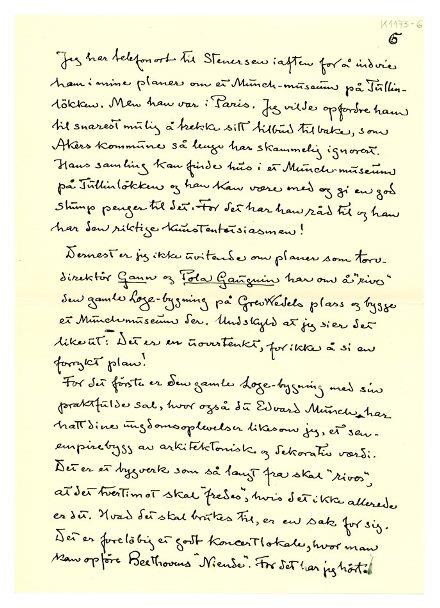 K1173-6
6
Jeg har telefonert til Stenersen iaften for å indvie
ham i mine planer om et Munch-museum på Tullin-
lökken. Men han var i Paris. Jeg vilde opfordre ham
til snarest mulig å trekke sitt tilbud tilbake, som
Akers kommune så lenge har skammelig ignorert.
Hans samling kan finde hus i et Munch-museum
på Tullinlökken og han kan være med og gi en god
stump penger til det. For det har han råd til og han
har den riktige kunstentusiasmen!
Dernest er jeg ikke uvitende om planer som
direktör Gann og Pola Gauguin har om å "rive"
den gamle Loge-bygning på Grev Wedels plass og bygge
et Munchmuseum der. Undskyld at jeg sier det
like ut: Det er en uoverstenkt, for ikke å si en
forrykt plan!
For det förste er den gamle Loge-bygning med sin
praktfulde sal, hvor også du Edvard Munch har
hatt dine ungdomsoplevelser likesom jeg, et sen-
empirebygg av arkitektonisk og dekorativ verdi.
Det er et bygverk som så langt fra skal "rives",
at det tvertimot skal "fredes", hvis det ikke allerede
er det. Hvad det skal brukes til, er en sak for sig.
Det er forelöbig et godt koncertlokale, hvor man
kan opföre Beethovens "Niende". For det har jeg hört.